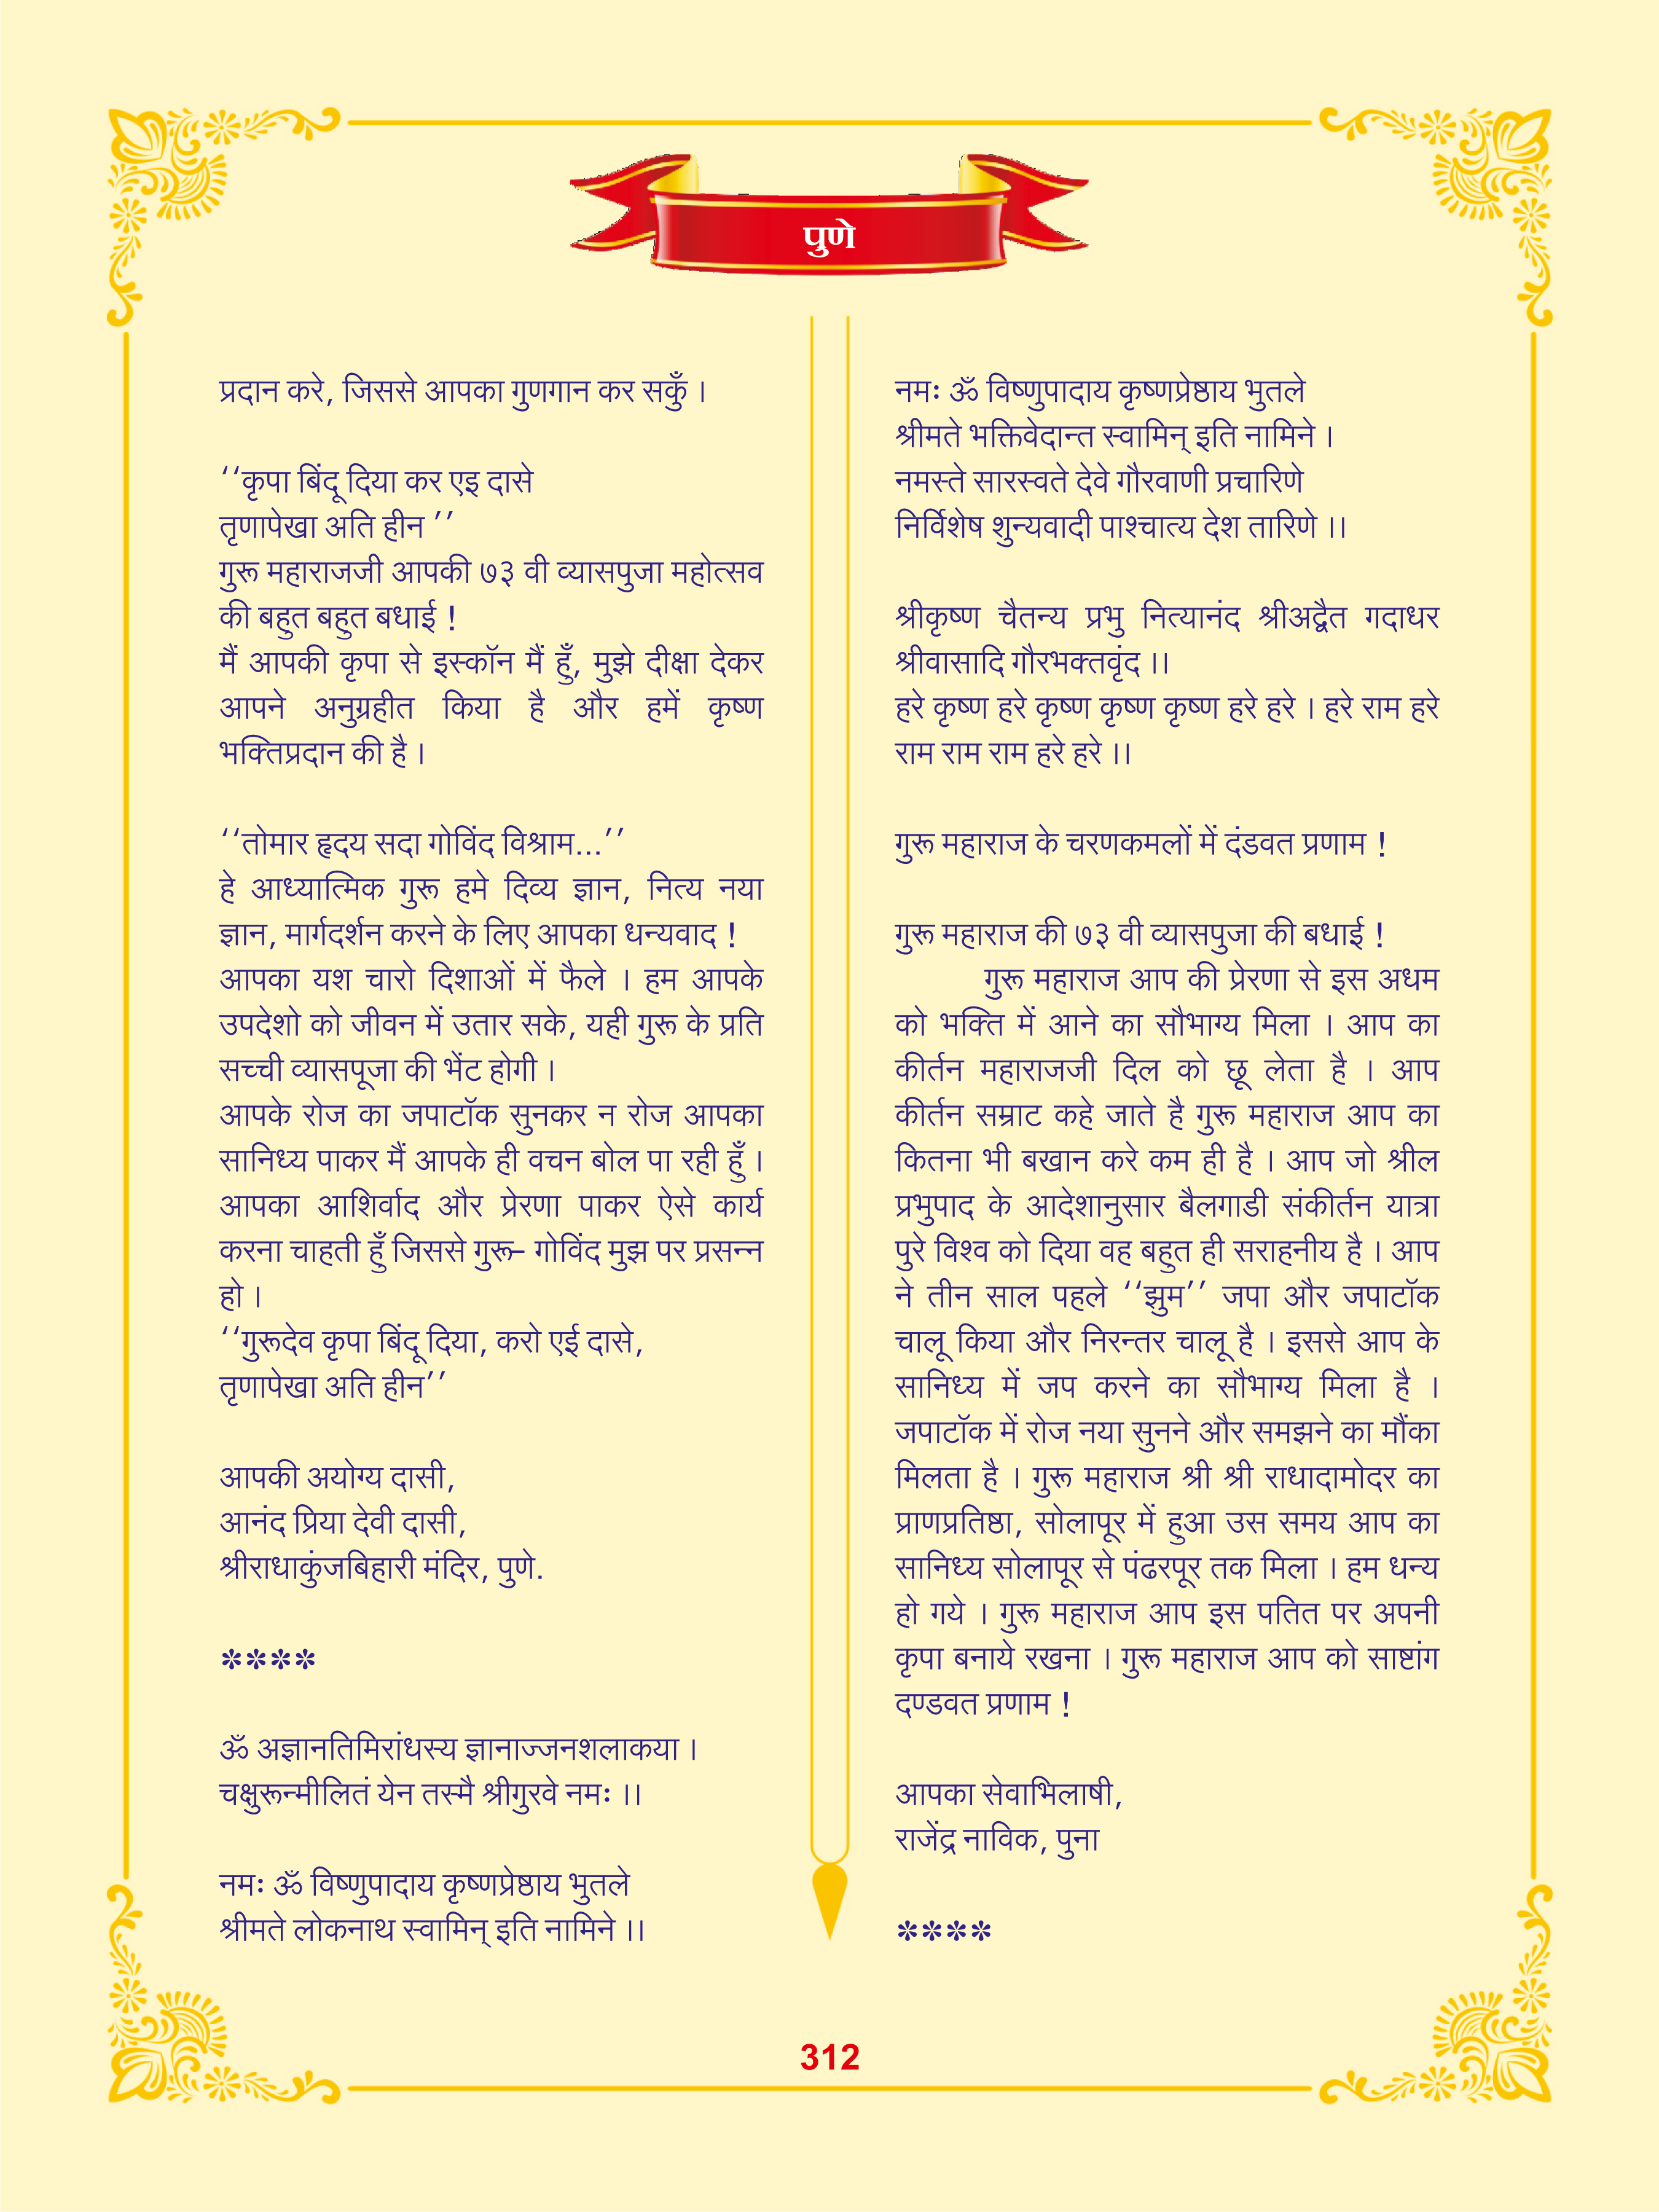 पुणे
प्रदान करे, जिससे आपका गुणगान कर सकुँ ।
‘‘कृपा बिंदू दिया कर एइ दासे
तृणापेखा अति हीन ’’
गुरू महाराजजी आपकी ७३ वी व्यासपुजा महोत्सव
की बहुत बहुत बधाई !
मैं आपकी कृपा से इस्कॉन मैं हुँ, मुझे दीक्षा देकर
आपने अनुग्रहीत किया है और हमें कृष्ण
भक्तिप्रदान की है ।
‘‘तोमार हृदय सदा गोविंद विश्राम...’’
हे आध्यात्मिक गुरू हमे दिव्य ज्ञान, नित्य नया
ज्ञान, मार्गदर्शन करने के लिए आपका धन्यवाद !
आपका यश चारो दिशाओं में फैले । हम आपके
उपदेशो को जीवन में उतार सके, यही गुरू के प्रति
सच्ची व्यासपूजा की भेंट होगी ।
आपके रोज का जपाटॉक सुनकर न रोज आपका
सानिध्य पाकर मैं आपके ही वचन बोल पा रही हुँ ।
आपका आशिर्वाद और प्रेरणा पाकर ऐसे कार्य
करना चाहती हुँ जिससे गुरू– गोविंद मुझ पर प्रसन्न
हो ।
‘‘गुरूदेव कृपा बिंदू दिया, करो एई दासे,
तृणापेखा अति हीन’’
आपकी अयोग्य दासी,
आनंद प्रिया देवी दासी,
श्रीराधाकुंजबिहारी मंदिर, पुणे.
****
ॐ अज्ञानतिमिरांधस्य ज्ञानाज्जनशलाकया ।
चक्षुरून्मीलितं येन तस्मै श्रीगुरवे नमः ।।
नमः ॐ विष्णुपादाय कृष्णप्रेष्ठाय भुतले
श्रीमते लोकनाथ स्वामिन् इति नामिने ।।
नमः ॐ विष्णुपादाय कृष्णप्रेष्ठाय भुतले
श्रीमते भक्तिवेदान्त स्वामिन् इति नामिने ।
नमस्ते सारस्वते देवे गौरवाणी प्रचारिणे
निर्विशेष शुन्यवादी पाश्चात्य देश तारिणे ।।
श्रीकृष्ण चैतन्य प्रभु नित्यानंद श्रीअद्वैत गदाधर
श्रीवासादि गौरभक्तवृंद ।।
हरे कृष्ण हरे कृष्ण कृष्ण कृष्ण हरे हरे । हरे राम हरे
राम राम राम हरे हरे ।।
गुरू महाराज के चरणकमलों में दंडवत प्रणाम !
गुरू महाराज की ७३ वी व्यासपुजा की बधाई !
गुरू महाराज आप की प्रेरणा से इस अधम
को भक्ति में आने का सौभाग्य मिला । आप का
कीर्तन महाराजजी दिल को छू लेता है । आप
कीर्तन सम्राट कहे जाते है गुरू महाराज आप का
कितना भी बखान करे कम ही है । आप जो श्रील
प्रभुपाद के आदेशानुसार बैलगाडी संकीर्तन यात्रा
पुरे विश्व को दिया वह बहुत ही सराहनीय है । आप
ने तीन साल पहले ‘‘झुम’’ जपा और जपाटॉक
चालू किया और निरन्तर चालू है । इससे आप के
सानिध्य में जप करने का सौभाग्य मिला है ।
जपाटॉक में रोज नया सुनने और समझने का मौंका
मिलता है । गुरू महाराज श्री श्री राधादामोदर का
प्राणप्रतिष्ठा, सोलापूर में हुआ उस समय आप का
सानिध्य सोलापूर से पंढरपूर तक मिला । हम धन्य
हो गये । गुरू महाराज आप इस पतित पर अपनी
कृपा बनाये रखना । गुरू महाराज आप को साष्टांग
दण्डवत प्रणाम !
आपका सेवाभिलाषी,
राजेंद्र नाविक, पुना
****
312